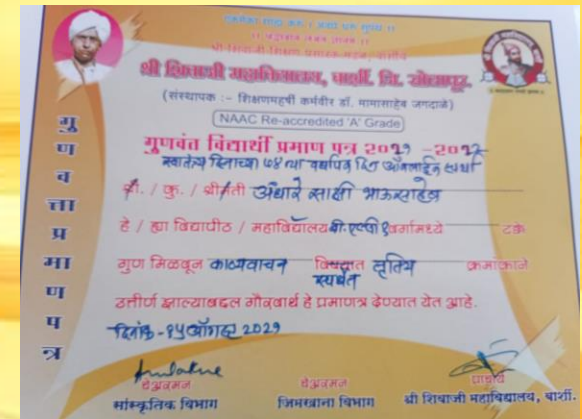 एकमेका साह्य करू । अवघे धरू सुपंथ ॥
श्री शिवाजी शिक्षण प्रसारक मंडळ, बार्शीचे
श्री शिवाजी महाविद्यालय, बार्शी. जि. सोलापूर.
(संस्थापक :- शिक्षणमहर्षी कर्मवीर डॉ. मामासाहेब जगदाळे)
NAAC Re-accredited 'A' Grade
गुणवंत विद्यार्थी प्रमाण पत्र २०२१ -२०२२
स्वातंत्र्य दिनाच्या ७४ व्या वर्धापन दिन ऑनलाईन स्पर्धा
श्री. / कु. / श्रीमती अंधारे साक्षी भाऊसाहेब
हे / ह्या विद्यापीठ / महाविद्यालय वर्गामध्ये टक्के
गुण मिळवून काव्यवाचन विषयात तृतिय क्रमांकाने
स्पर्धेत
उत्तीर्ण झाल्याबद्दल गौरवार्थ हे प्रमाणपत्र देण्यात येत आहे.
दिनांक - १५ ऑगस्ट २०२१
चेअरमन चेअरमन प्राचार्य
सांस्कृतिक विभाग जिमखाना विभाग श्री शिवाजी महाविद्यालय, बार्शी.
गुणवत्ता प्रमाण पत्र